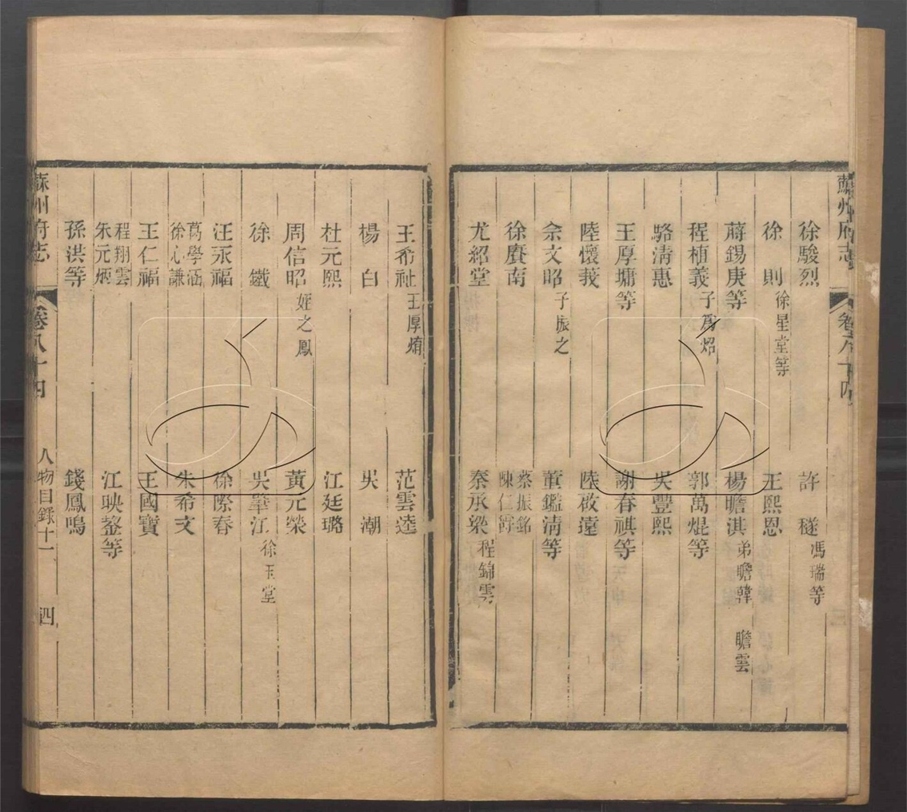 蘇州府志 卷八十四
徐駿烈 許 禭 馮瑞等
徐 則 徐星堂等 王熙恩
蔣錫庚等 楊瞻淇 弟瞻韓 瞻雲
程楨義 子爲炤 郭萬焜等
駱清惠 吳豐熙
王厚墉等 謝春祺等
陸懷莪 陸啟蓮
余文昭 子振之 董鑑清等
徐賡南 蔡振銘 陳仁
尤紹堂 秦承梁 程錦雲
王希祉 王厚焴 范雲逵
楊 白 吳 潮
杜元熙 江廷璐
周信昭 姪之鳳 黃元榮
徐 鐵 吳肇江 徐玉堂
汪永福 徐際春
葛學涵 徐元謙 朱希文
王仁福 王國寶
程翔雲 朱元炳 江映蓥等
孫洪等 錢鳳鳴
蘇州府志 卷八十四 人物目錄十一 四